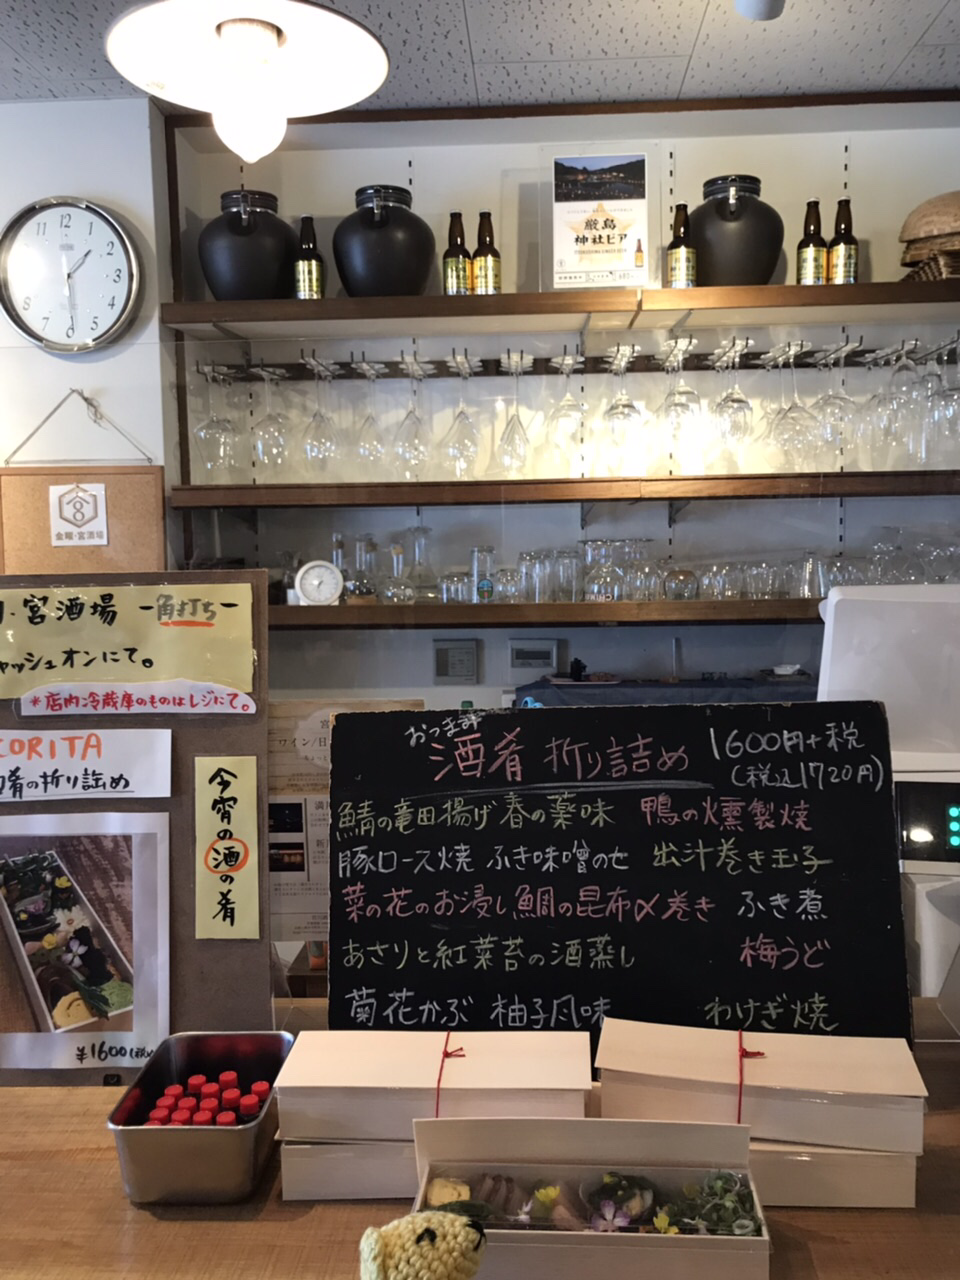 厳島
神社ビア
12
1
2
3
4
5
6
7
8
9
10
11
8
金曜・宮酒場
・宮酒場 ー角打ちー
ャッシュオンにて。
*店内冷蔵庫のものはレジにて。
CORITA
肴の折り詰め
今宵の酒の肴
¥1600(税
ワイン/日
おつまみ
酒肴 折り詰め 1600円+税
(税込1720円)
鯖の竜田揚げ 春の薬味 鴨の燻製焼
豚ロース焼 ふき味噌のせ 出汁巻き玉子
菜の花のお浸し 鯛の昆布〆巻き ふき煮
あさりと紅菜苔の酒蒸し 梅うど
菊花かぶ 柚子風味 わけぎ焼